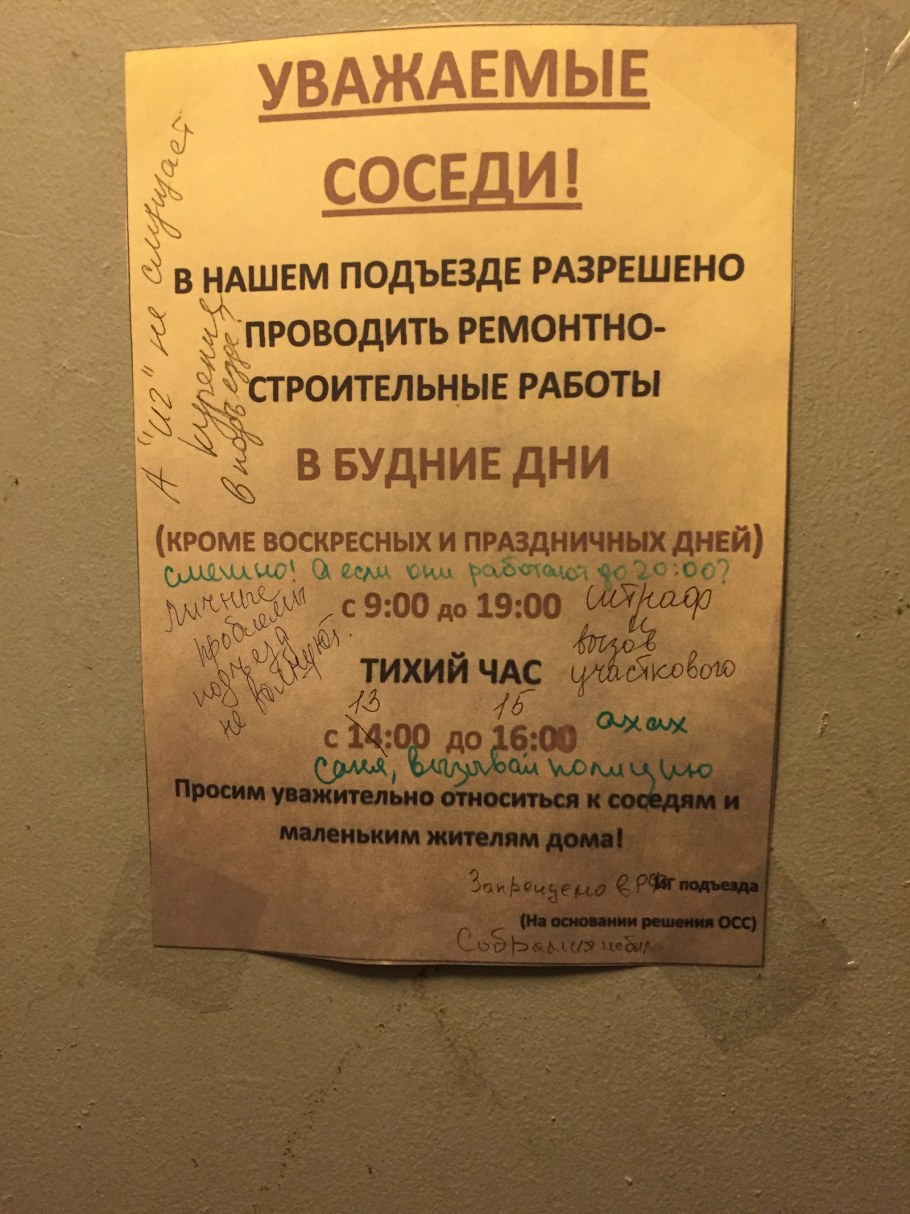 УВАЖАЕМЫЕ
СОСЕДИ!
А "иг" не смущает
курение
в подъезде?
В НАШЕМ ПОДЪЕЗДЕ РАЗРЕШЕНО
ПРОВОДИТЬ РЕМОНТНО-
СТРОИТЕЛЬНЫЕ РАБОТЫ
В БУДНИЕ ДНИ
(КРОМЕ ВОСКРЕСНЫХ И ПРАЗДНИЧНЫХ ДНЕЙ)
смешно! А если они работают до 20:00?
Личные
проблемы
подъезд
не волнуют.
с 9:00 до 19:00
Штраф
и
вызов
участкового
ТИХИЙ ЧАС
13 15
с 14:00 до 16:00
ахах
Саня, вызывай полицию
Просим уважительно относиться к соседям и
маленьким жителям дома!
Запрещено в РФ
ИГ подъезда
(На основании решения ОСС)
Собрания не был